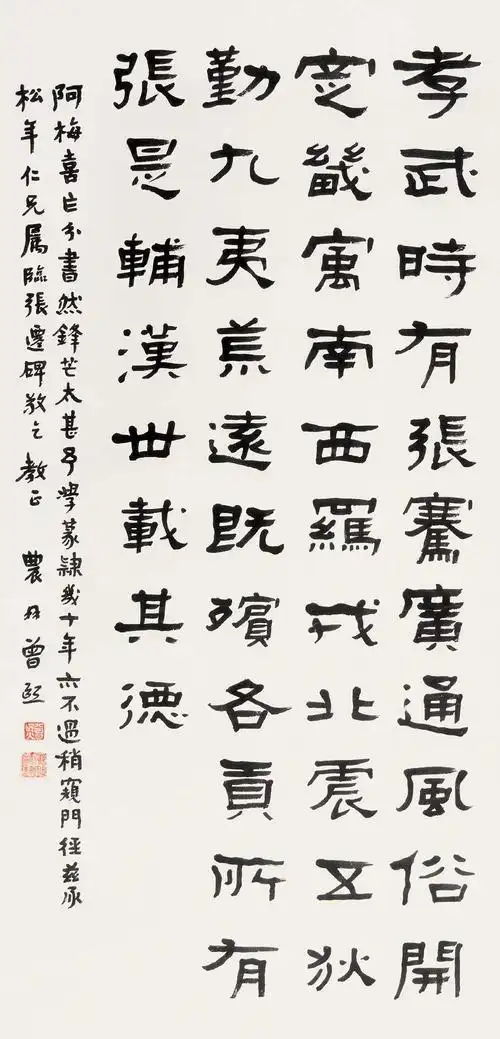 孝武時有張騫廣通風俗開
定畿寓南西羈戎北震五狄
勤九夷荒遠既殯各貢所有
張是輔漢世載其德
阿梅喜乍分書然鋒芒太甚予學篆隸幾十年亦不過稍窺門徑茲承
松年仁兄屬臨張遷碑敬乞教正 農髯曾熙